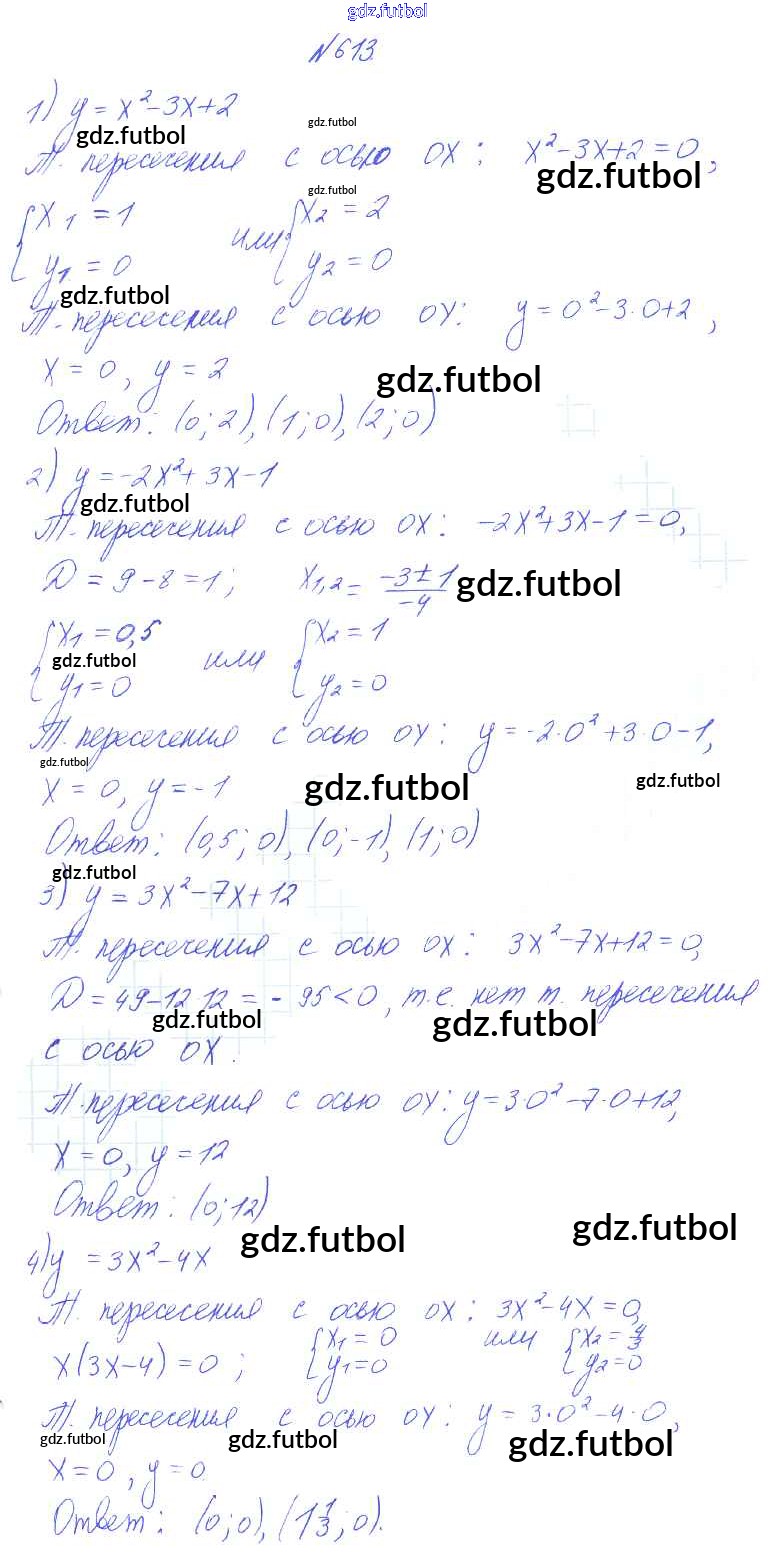 gdz.futbol
№613.
1) y = x² - 3x + 2
gdz.futbol
gdz.futbol
Т. пересечения с осью OX: x² - 3x + 2 = 0,
gdz.futbol
gdz.futbol
{x₁ = 1 или {x₂ = 2
y₁ = 0 y₂ = 0
gdz.futbol
Т. пересечения с осью OY: y = 0² - 3·0 + 2,
x = 0, y = 2
gdz.futbol
Ответ: (0; 2), (1; 0), (2; 0)
2) y = -2x² + 3x - 1
gdz.futbol
Т. пересечения с осью OX: -2x² + 3x - 1 = 0,
D = 9 - 8 = 1; x₁,₂ = (-3 ± 1)/(-4)
gdz.futbol
{x₁ = 0,5 или {x₂ = 1
gdz.futbol
y₁ = 0 y₂ = 0
Т. пересечения с осью OY: y = -2·0² + 3·0 - 1,
gdz.futbol
x = 0, y = -1
gdz.futbol
gdz.futbol
Ответ: (0,5; 0), (0; -1), (1; 0)
gdz.futbol
3) y = 3x² - 7x + 12
Т. пересечения с осью OX: 3x² - 7x + 12 = 0,
D = 49 - 12·12 = - 95 < 0, т.е. нет т. пересечения
gdz.futbol
gdz.futbol
с осью OX.
Т. пересечения с осью OY: y = 3·0² - 7·0 + 12,
x = 0, y = 12
Ответ: (0; 12)
gdz.futbol
gdz.futbol
4) y = 3x² - 4x
Т. пересечения с осью OX: 3x² - 4x = 0,
x(3x - 4) = 0; {x₁ = 0 или {x₂ = 4/3
y₁ = 0 y₂ = 0
Т. пересечения с осью OY: y = 3·0² - 4·0,
gdz.futbol
gdz.futbol
gdz.futbol
x = 0, y = 0
Ответ: (0; 0), (1 1/3; 0).